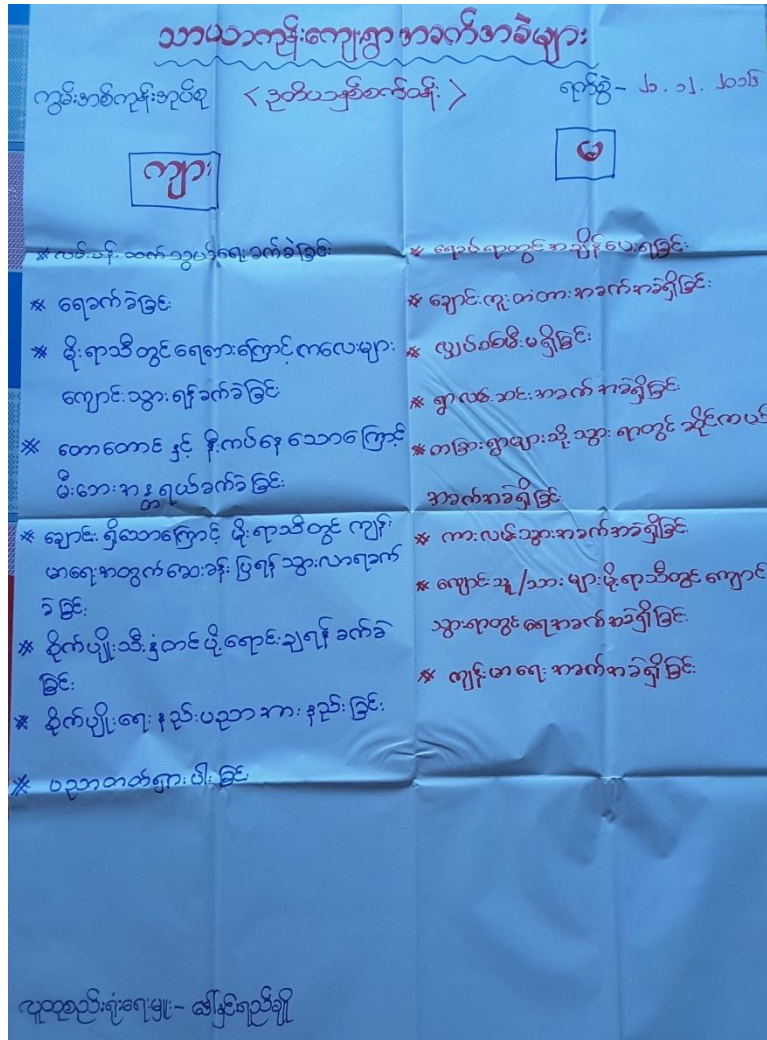 သာယာကုန်းကျေးရွာ အခက်အခဲများ
ကွမ်းအစ်ကုန်းအုပ်စု < ဒုတိယနှစ်စက်ဝန်း > ရက်စွဲ -
ကျား
* လမ်းပန်း ဆက်သွယ်ရေးခက်ခဲခြင်း
* ရေခက်ခဲခြင်း
* မိုးရာသီတွင်ရေစားကြောင့်ကလေးများ
ကျောင်းသွားရန်ခက်ခဲခြင်း
* တောတောင် နှင့် နီးကပ်နေသောကြောင့်
မီးဘေးအန္တရယ်ခက်ခဲခြင်း
* ချောင်းရှိသောကြောင့် မိုးရာသီတွင် ကျန်း
မာရေးအတွက်ဆေးခန်းပြရန်သွားလာရခက်
ခဲခြင်း
* စိုက်ပျိုးသီးနှံတင်ပို့ရောင်းချရန်ခက်ခဲ
ခြင်း
* စိုက်ပျိုးရေးနည်းပညာအားနည်းခြင်း
* ပညာတတ်ရှားပါးခြင်း
မ
* ရေခပ်ရာတွင်အချိန်ပေးရခြင်း
* ချောင်းကူးတံတားအခက်အခဲရှိခြင်း
* လျှပ်စစ်မီးမရှိခြင်း
* ရွာလမ်းဆင်းအခက်အခဲရှိခြင်း
* တခြားရွာများသို့သွားရာတွင် ဆိုင်ကယ်
အခက်အခဲရှိခြင်း
* ကားလမ်းသွားအခက်အခဲရှိခြင်း
* ကျောင်းသူ/သားများမိုးရာသီတွင်ကျောင်း
သွားရာတွင်ရေအခက်အခဲရှိခြင်း
* ကျန်းမာရေးအခက်အခဲရှိခြင်း
လူထုစည်းရုံးရေးမှူး -